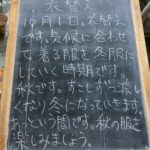 衣替え
10月1日。衣替え
です。気候に合わせ
て着る服を冬服に
していく時期です。
秋です。すこしずつ涼し
くなり冬になっていきます。
あっという間です。秋の服を
楽しみましょう。